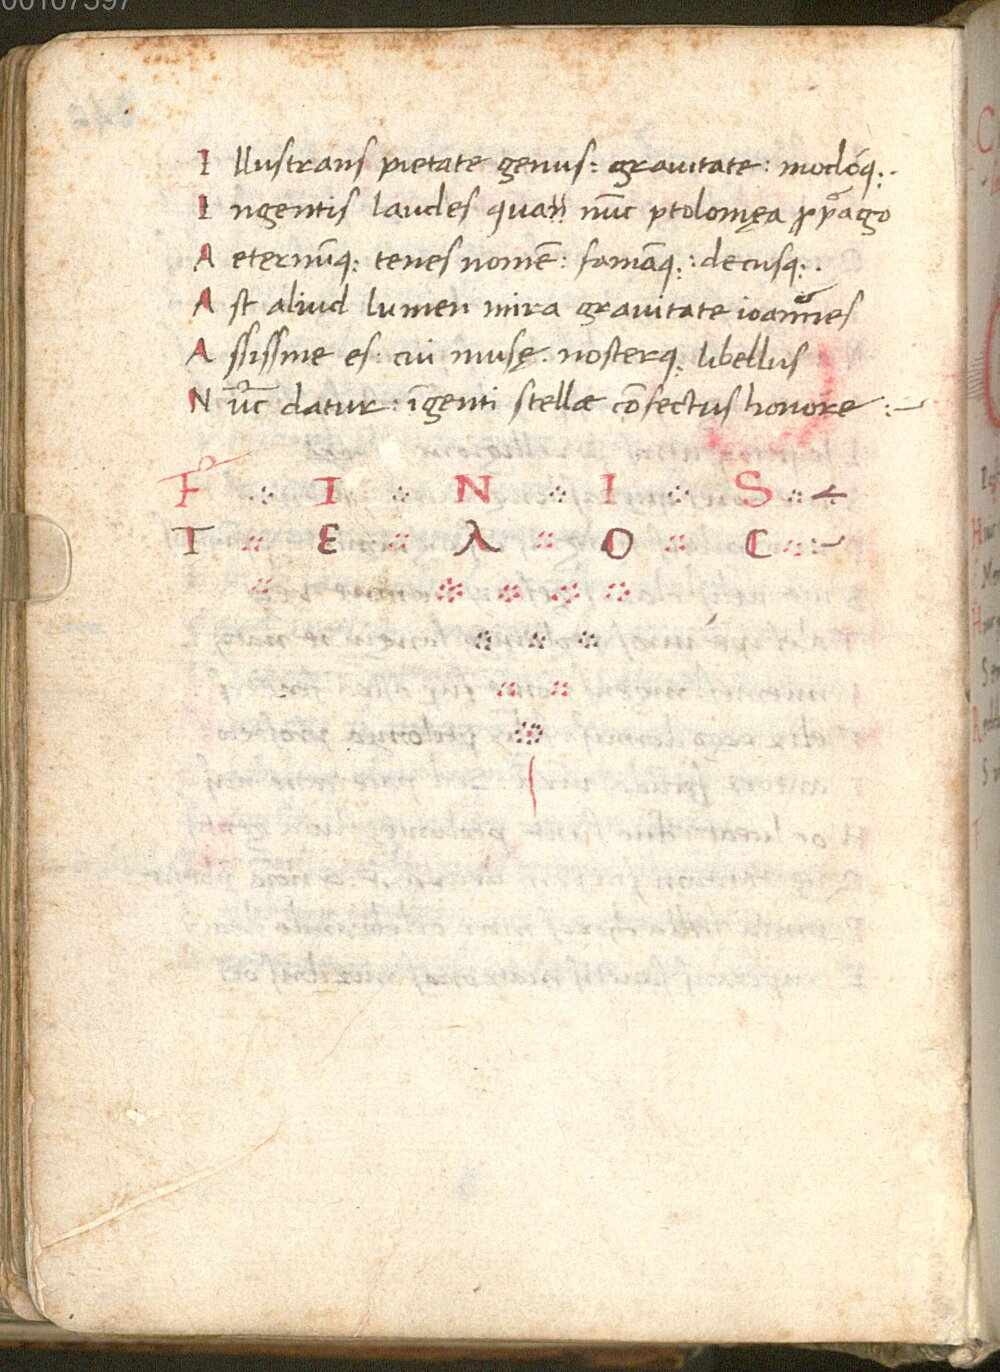 00107397
Illustrans pietate genus: grauitate: modóq;.
Ingentis laudes quan nūc ptolomęa ppago
Aeternūq; tenes nomē: famāq;: decusq;.
Ast aliud lumen mira grauitate ioannes
Assissme es: cui musę. nosterq; libellus
Nūc datur: īgenti stellae cōfectus honore :~
F I N I S
T Ε λ Ο C